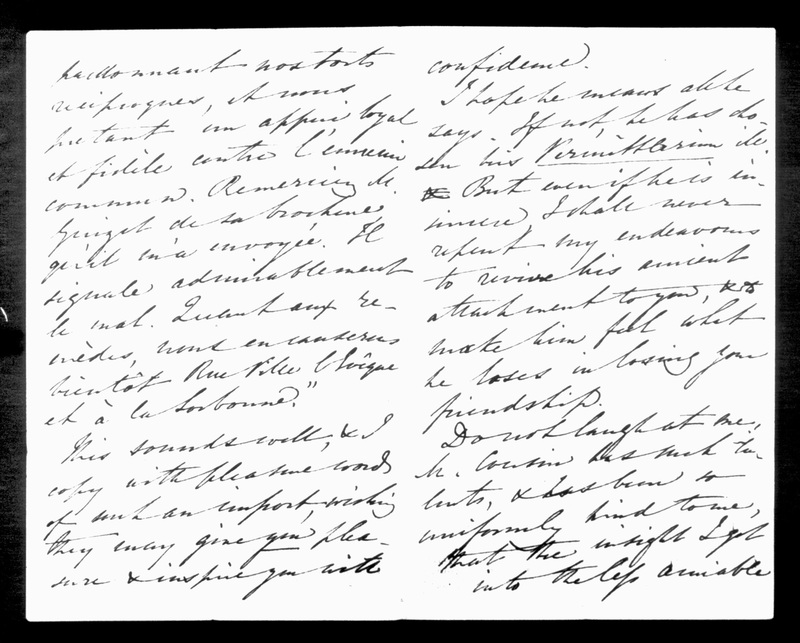 pardonnant nos torts
réciproques, et nous
prêtant un appui loyal
et fidèle contre l'ennemi
commun. Remerciez M.
Guizot de sa brochure
qu'il m'a envoyée. Il
signale admirablement
le mal. Quant aux re-
mèdes, nous en causerons
bientôt Rue Ville l'Evêque
et à la Sorbonne."
This sounds well, & I
copy with pleasure words
of such an import, wishing
they may give you plea-
sure & inspire you with
confidence.
I hope he means all he
says. If not, he has cho-
sen his
But even if he is in-
sincere, I shall never
repent my endeavours
to revive his ancient
attachment to you, & to
make him feel what
he loses in losing your
friendship.
Do not laugh at me,
M. Cousin has such ta-
lents, & has been so
uniformly kind to me,
that the insight I got
into the less amiable